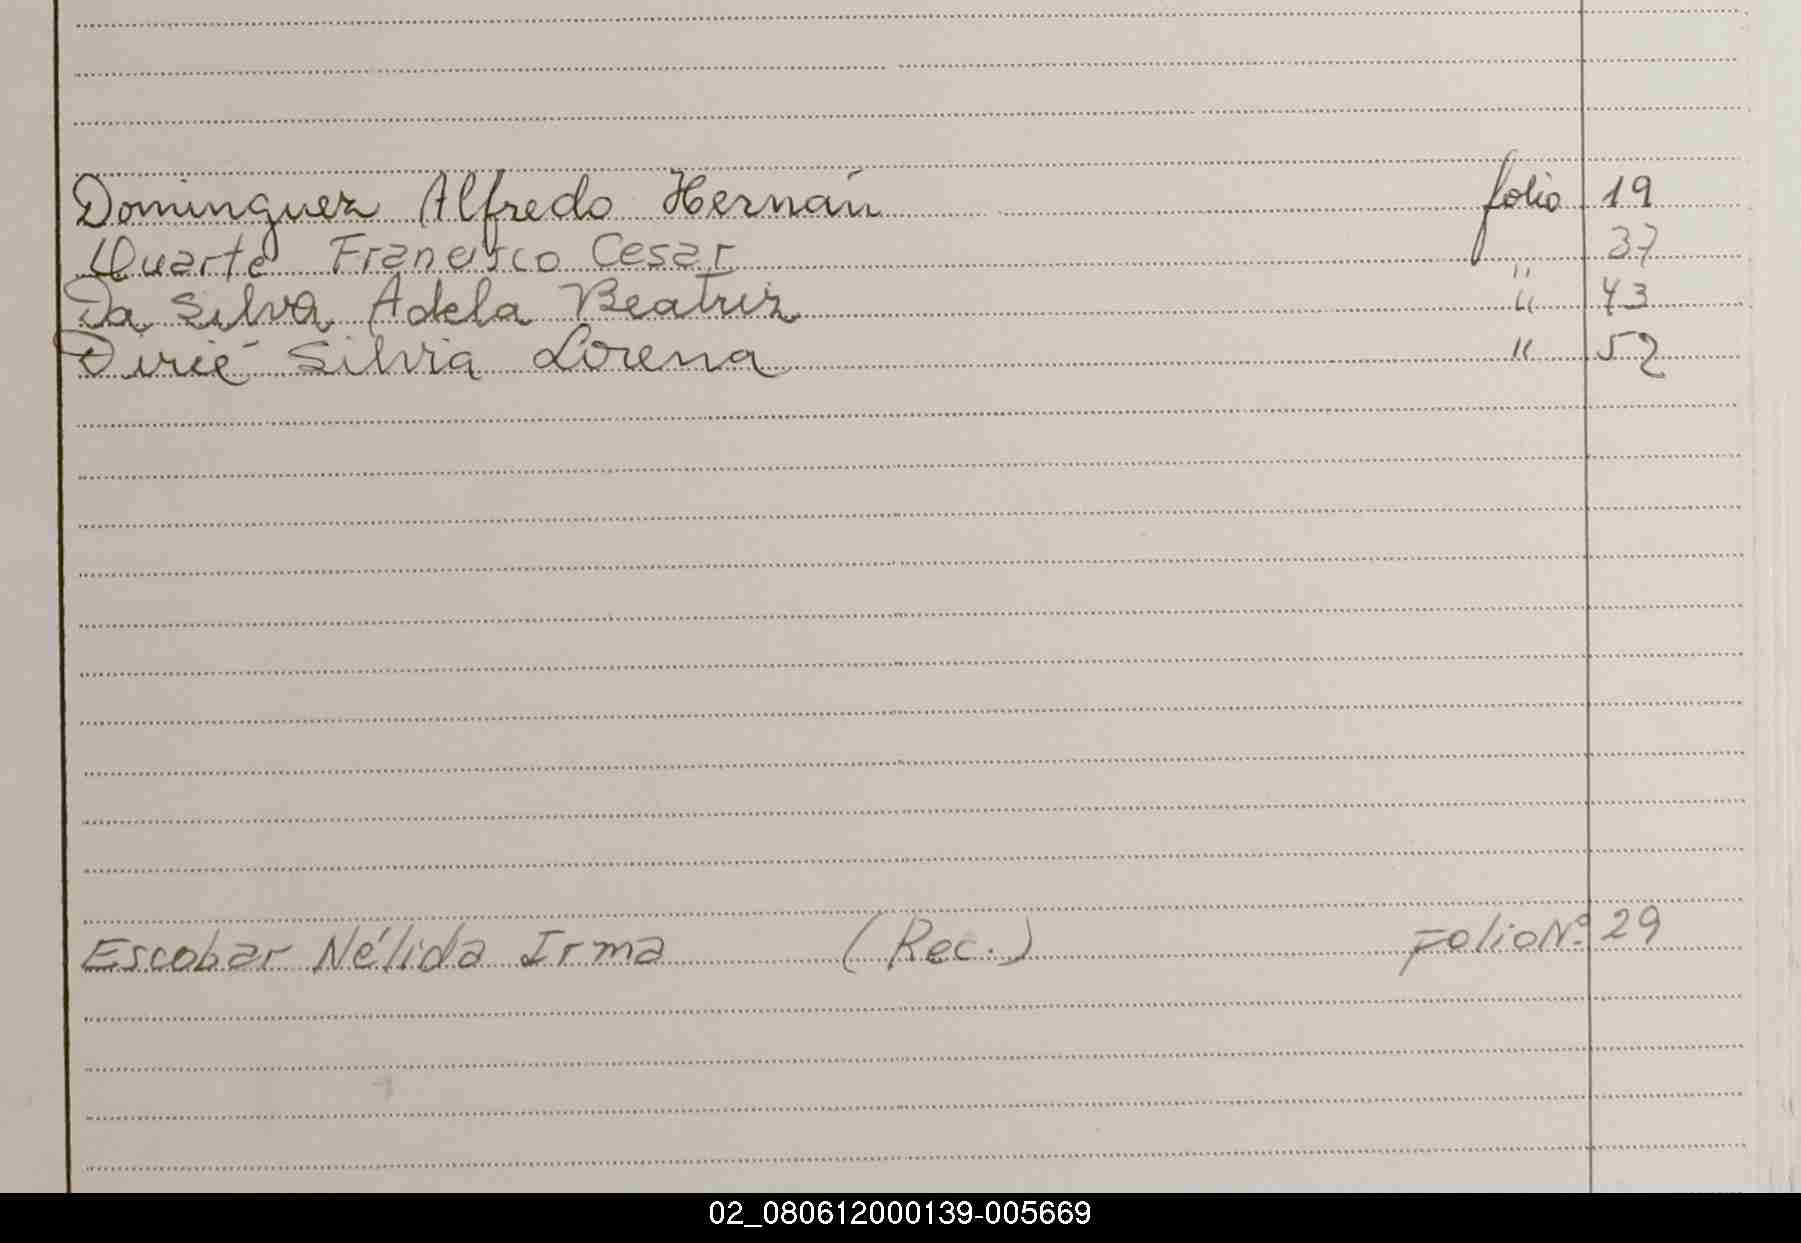 Dominguez Alfredo Hernán folio 19
Duarte Francisco Cesar " 37
Da Silva Adela Beatriz " 43
Dirié Silvia Lorena " 52
Escobar Nélida Irma (Rec.) Folio Nº 29
02_080612000139-005669